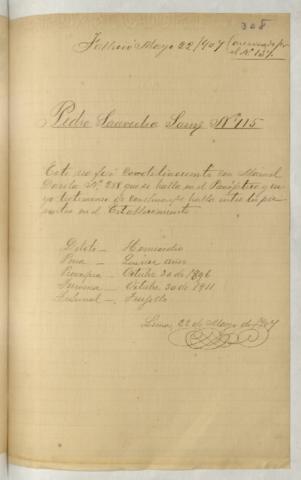 308
Falleció Mayo 22/907 Comunicado por
el Nº 137.
Pedro Saavedra Sanz Nº 115
Este reo fué codelincuente con Manuel
Dávila Nº 258 que se halla en el Panóptico y cu
yo testimonio de condena se halla entre los pre
sentes en el Establecimiento
Delito — Homicidio
Pena — Quince años
Principia — Octubre 30 de 1896
Termina — Octubre 30 de 1911
Tribunal — Trujillo
Lima, 22 de Mayo de 1907